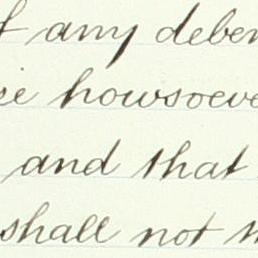 any
howsoeve
and that
shall not